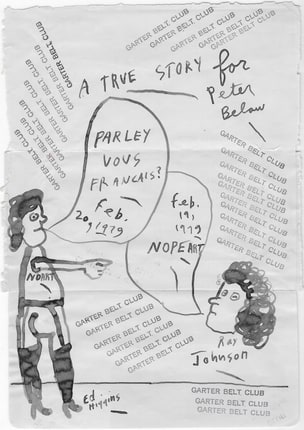 GARTER BELT CLUB
GARTER BELT CLUB
GARTER BELT CLUB
GARTER BELT CLUB
GARTER BELT CLUB
GARTER BELT CLUB
GARTER BELT CLUB
GARTER BELT CLUB
GARTER BELT CLUB
GARTER BELT CLUB
GARTER BELT CLUB
GARTER BELT CLUB
A TRUE STORY for
Peter
Below
GARTER BELT CLUB
GARTER BELT CLUB
GARTER BELT CLUB
GARTER BELT CLUB
GARTER BELT CLUB
GARTER BELT CLUB
GARTER BELT CLUB
GARTER BELT CLUB
GARTER BELT CLUB
PARLEY
VOUS
FRANCAIS?
Feb.
20, 1979
Feb.
19,
1979
NOPEART
NOART
GARTER BELT CLUB
GARTER BELT CLUB
GARTER BELT CLUB
GARTER BELT CLUB
GARTER BELT CLUB
Ray
Johnson
Ed
Higgins
GARTER BELT CLUB
GARTER BELT CLUB
GARTER BELT CLUB